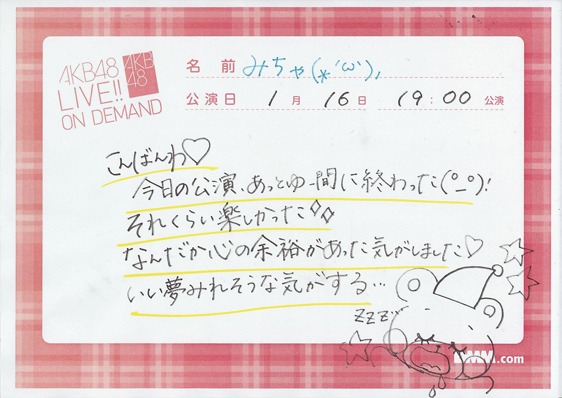 AKB48
LIVE!!
ON DEMAND
AKB
48
名前 みちゃ(*´ω`),
公演日 1月16日 19:00 公演
こんばんわ♡
今日の公演、あっとゆー間に終わった(°_°)!
それくらい楽しかった✧✧
なんだか心の余裕があった気がしました♡
いい夢みれそうな気がする…
zzz…
DMM.com